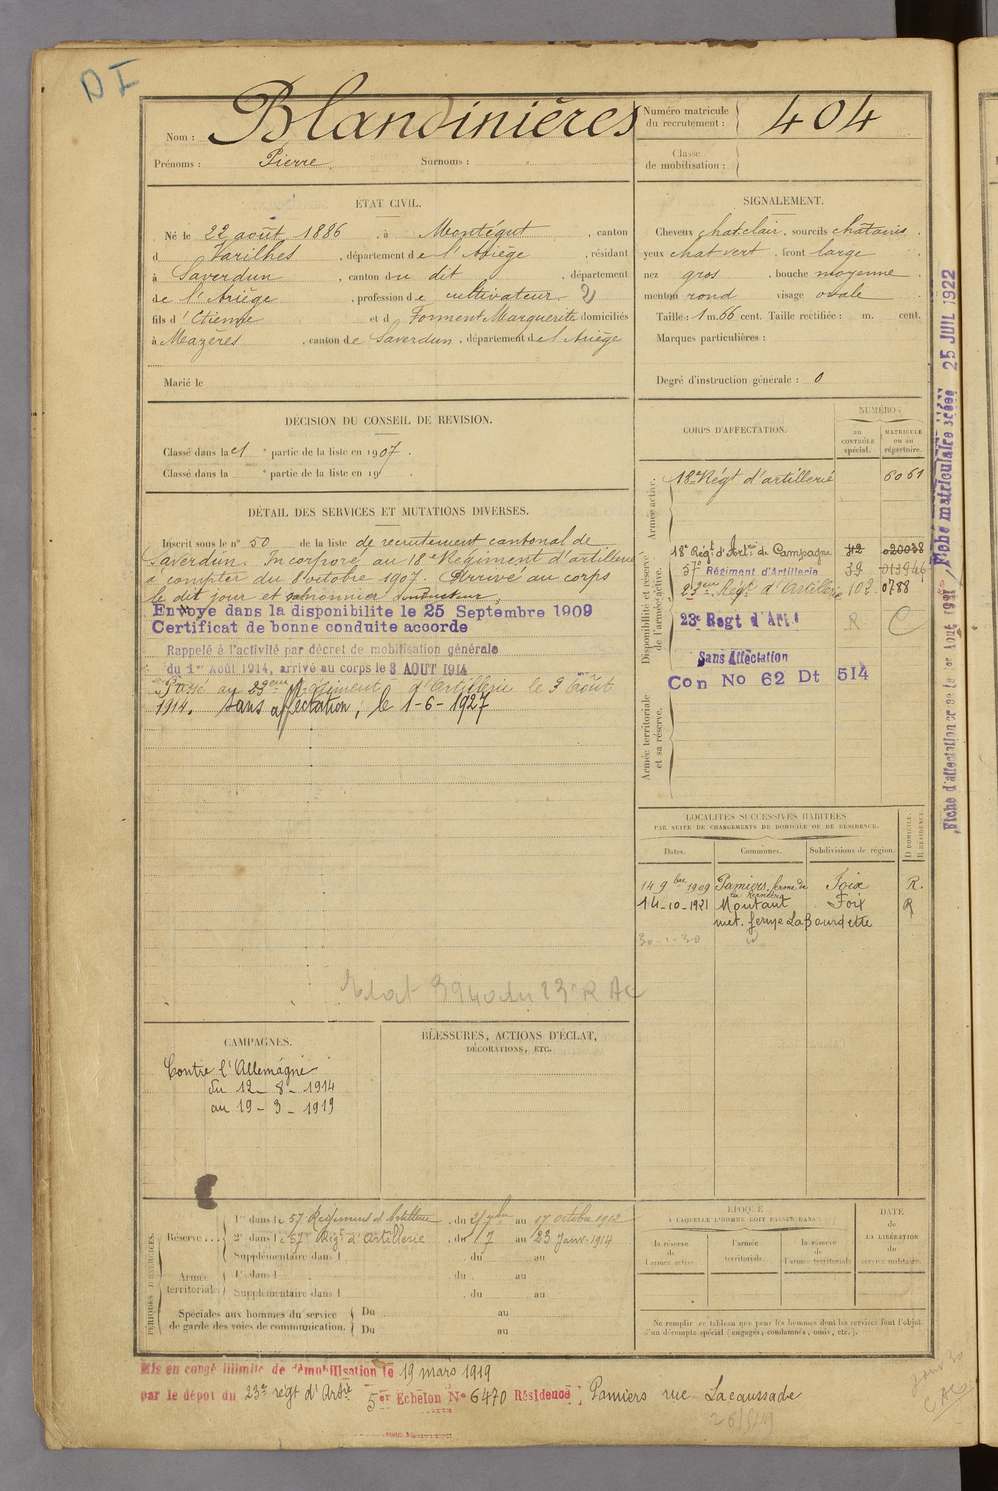 D I
Nom : Blandinières
Prénoms : Pierre Surnoms :
Numéro matricule du recrutement : 404
Classe de mobilisation :
ÉTAT CIVIL.
Né le 22 août 1886, à Montégut, canton
d Varilhes, département de l'Ariège, résidant
à Saverdun, canton du dit, département
de l'Ariège, profession de cultivateur 2
fils d'Etienne et d Forment Marguerite domiciliés
à Mazères, canton de Saverdun, département de l'Ariège
Marié le
SIGNALEMENT.
Cheveux chat clair, sourcils châtains
yeux chat vert, front large
nez gros, bouche moyenne
menton rond visage ovale
Taille : 1 m. 66 cent. Taille rectifiée : m. cent.
Marques particulières :
Degré d'instruction générale : 0
DÉCISION DU CONSEIL DE REVISION.
Classé dans la 1 e partie de la liste en 1907.
Classé dans la e partie de la liste en 19
DÉTAIL DES SERVICES ET MUTATIONS DIVERSES.
Inscrit sous le n° 50 de la liste de recrutement cantonal de
Saverdun. Incorporé au 18e Régiment d'artillerie
à compter du 8 octobre 1907. Arrivé au corps
le dit jour et canonnier conducteur.
Envoye dans la disponibilite le 25 Septembre 1909
Certificat de bonne conduite accorde
Rappelé à l'activité par décret de mobilisation générale
du 1er Août 1914, arrivé au corps le 3 AOUT 1914
Passé au 23eme Régiment d'Artillerie le 9 Août
1914. Sans affectation, le 1-6-1927
Etat 3940 du 23e R AC
CORPS D'AFFECTATION.
NUMÉRO :
au CONTRÔLE spécial.
MATRICULE ou au répertoire.
Armée active.
18e Régt d'artillerie 6061
Disponibilité et réserve de l'armée active.
18e Régt d'Artie de Campagne 42 020038
57e Régiment d'Artillerie 39 013946
23eme Régt d'Artillerie 102 0788
23e Regt d'Art! R C
Sans Affectation
Con No 62 Dt 514
Armée territoriale et sa réserve.
LOCALITÉS SUCCESSIVES HABITÉES
PAR SUITE DE CHANGEMENTS DE DOMICILE OU DE RÉSIDENCE.
Dates. Communes. Subdivisions de région. D DOMICILE. R RÉSIDENCE.
14 9bre 1909 Pamiers, ferme de Foix R.
14-10-1921 Montaut Foix R
met. ferme La Bourdette
30-1-30 id
CAMPAGNES.
Contre l'Allemagne
du 12-8-1914
au 19-3-1919
BLESSURES, ACTIONS D'ÉCLAT,
DÉCORATIONS, ETC.
PÉRIODES D'EXERCICES.
Réserve....
1re dans le 57e Régiment d'Artillerie, du 2/7bre au 17 octobre 1912
2e dans le 57e Régt d'Artillerie, du 7 au 23 Janv. 1914
Supplémentaire dans l , du au
Armée territoriale.
1re dans l , du au
Supplémentaire dans l , du au
Spéciales aux hommes du service
de garde des voies de communication.
Du au
Du au
ÉPOQUE
À LAQUELLE L'HOMME DOIT PASSER DANS :
la réserve de l'armée active.
l'armée territoriale.
la réserve de l'armée territoriale
DATE de LA LIBÉRATION du service militaire.
Ne remplir ce tableau que pour les hommes dont les services font l'objet
d'un décompte spécial (engagés, condamnés, omis, etc.).
Mis en congé illimité de démobilisation le 19 mars 1919
par le dépot du 23e régt d'Artie 5er Echelon N° 6470 Résidence : Pamiers rue Lacaussade
Fiche matriculaire créée 25 JUIL 1922